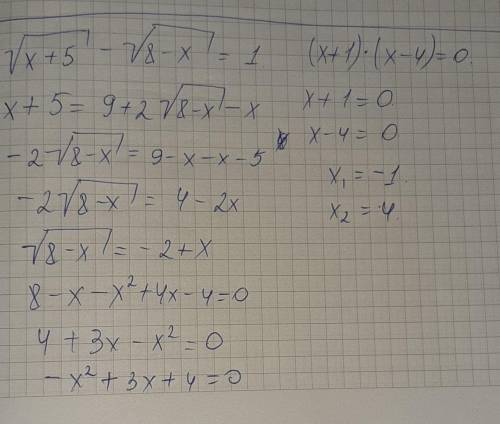 √x+5 - √8-x = 1
x+5 = 9+2√8-x - x
-2√8-x = 9-x-x-5
-2√8-x = 4-2x
√8-x = -2+x
8-x-x²+4x-4=0
4+3x-x²=0
-x²+3x+4=0
(x+1)·(x-4)=0.
x+1=0
x-4=0
x₁=-1.
x₂=4.